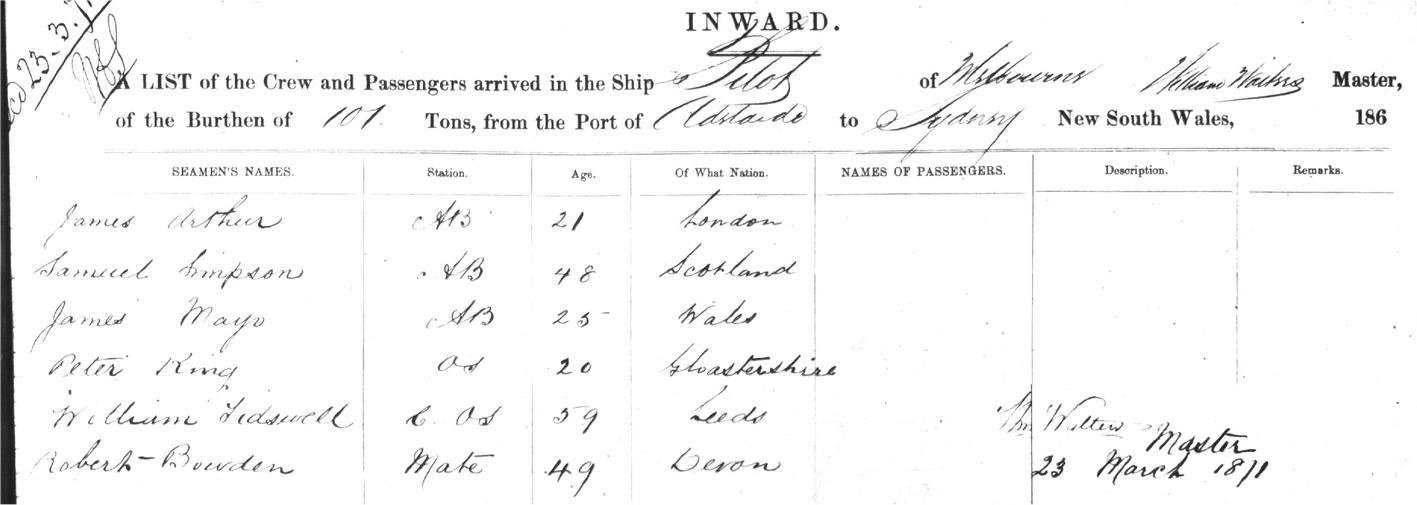 INWARD.
23-3-71
A LIST of the Crew and Passengers arrived in the Ship Pilot of Melbourne William Master,
of the Burthen of 101 Tons, from the Port of Adelaide to Sydney New South Wales, 186
SEAMEN'S NAMES. Station. Age. Of What Nation. NAMES OF PASSENGERS. Description. Remarks.
James Arthur AB 21 London
Samuel Simpson AB 48 Scotland
James Mayo AB 25 Wales
Peter King Os 20 Gloastershire
William Tidswell C. Os 59 Leeds
Robert Bowden Mate 49 Devon
Wm
Master
23 March 1871